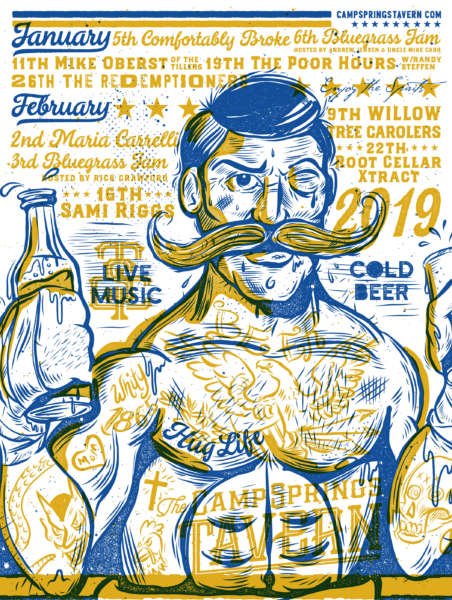 CAMPSPRINGSTAVERN.COM
January 5th Comfortably Broke 6th Bluegrass Jam
HOSTED BY ANDREW JENSEN & UNCLE MIKE CARR
11TH MIKE OBERST OF THE TILLERS 19TH THE POOR HOURS W/RANDY STEFFEN
26TH THE REDEMPTIONERS
Enjoy the Spirits
February
2nd Maria Carrelli
3rd Bluegrass Jam
HOSTED BY RICK CRAWFORD
16TH
SAMI RIGGS
9TH WILLOW
TREE CAROLERS
22TH
ROOT CELLAR
XTRACT
2019
LIVE
MUSIC
COLD
BEER
Why?
Hug Life
MOM
The
CAMPSPRINGS
TAVERN